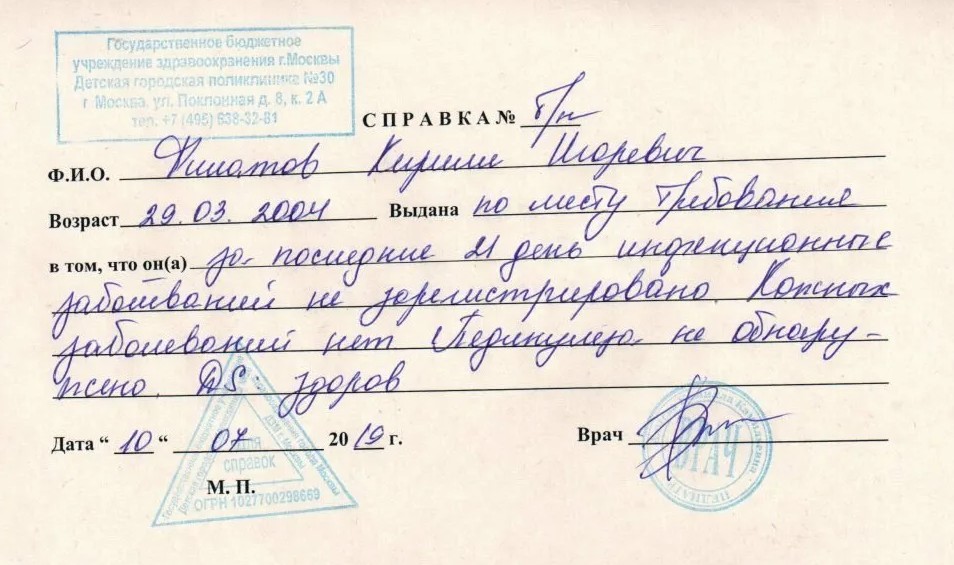 Государственное бюджетное
учреждение здравоохранения г.Москвы
Детская городская поликлиника №30
г. Москва, ул. Поклонная д. 8, к. 2 А
тел. +7 (495) 638-32-81
СПРАВКА № б/н
Ф.И.О. Филатов Кирилл Игоревич
Возраст 29.03.2004 Выдана по месту требования
в том, что он(а) за последние 21 день инфекционные
заболеваний не зарегистрировано. Кожных
заболеваний нет. Педикулёза не обнару-
жено. DS: здоров
Дата “ 10 “ 07 2019 г.
Врач
для
справок
М. П.
ОГРН 1027700298669
ВРАЧ
ПЕДИАТР